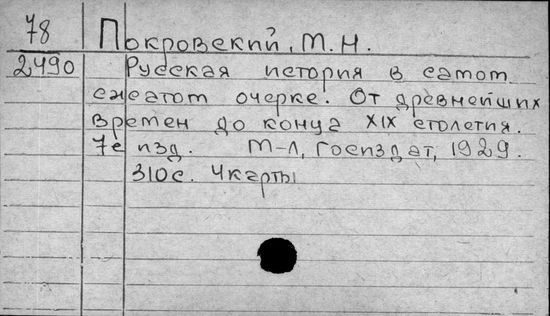 78 Покровский, М. Н.
2490 Русская история в самом
сжатом очерке. От древнейших
времен до конца XIX столетия.
7е изд. М-Л, Госиздат, 1929.
310с. 4карты